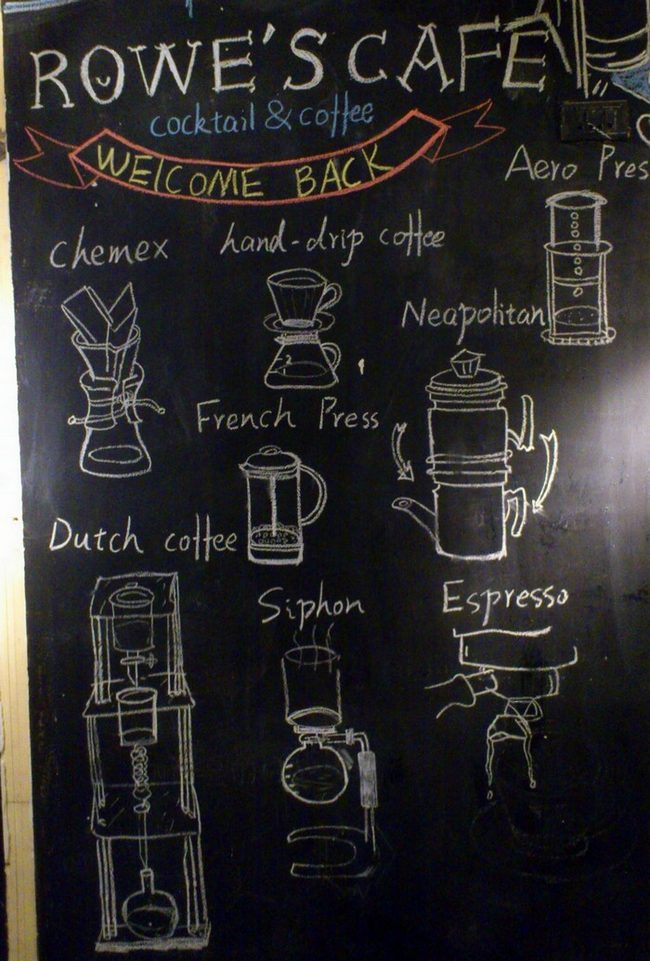 ROWE'S CAFE
cocktail & coffee
WELCOME BACK
Aero Pres
chemex
hand-drip coffee
Neapolitan
French Press
Dutch coffee
Siphon
Espresso